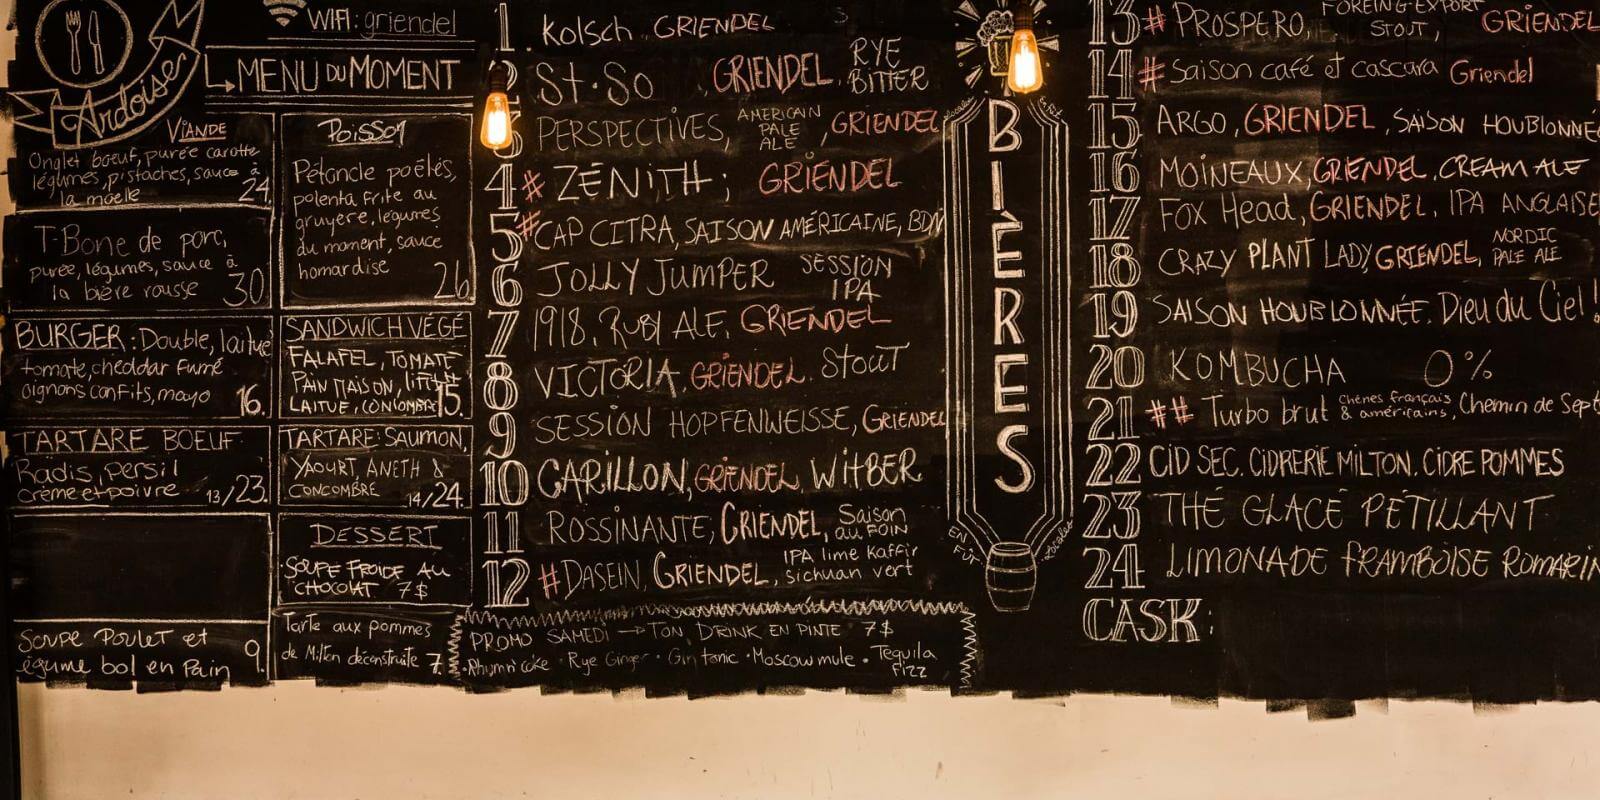 WIFI: griendel
Ardoise
MENU DU MOMENT
VIANDE
Onglet boeuf, purée carotte
légumes, pistaches, sauce à
la moelle 24
T-Bone de porc,
purée, légumes, sauce à
la bière rousse 30
BURGER: Double, laitue
tomate, cheddar fumé
oignons confits, mayo 16.
TARTARE BOEUF
Radis, persil
crème et poivre 13/23.
Soupe Poulet et
légume bol en Pain 9.
POISSON
Pétoncle poêlés,
polenta frite au
gruyère, légumes
du moment, sauce
homardise 26
SANDWICH VÉGÉ
FALAFEL, TOMATE
PAIN MAISON,
LAITUE, CONCOMBRE 15.
TARTARE: SAUMON,
YAOURT, ANETH &
CONCOMBRE 14/24.
DESSERT
SOUPE FROIDE AU
CHOCOLAT 7$
Tarte aux pommes
de Milton déconstruite 7.
1. Kolsch GRIENDEL
2 St-So, GRIENDEL, RYE BITTER
3 PERSPECTIVES, AMERICAIN PALE ALE, GRIENDEL
4 # ZÉNITH; GRIENDEL
5 # CAP CITRA, SAISON AMÉRICAINE, BDN
6 JOLLY JUMPER SESSION IPA
7 1918, RUBY ALE, GRIENDEL
8 VICTORIA, GRIENDEL. STOUT
9 SESSION HOPFENWEISSE, GRIENDEL
10 CARILLON, GRIENDEL, WITBER
11 ROSSINANTE, GRIENDEL, Saison au FOIN
12 # DASEIN, GRIENDEL, IPA lime Kaffir sichuan vert
PROMO SAMEDI → TON DRINK EN PINTE 7$
Rhum'n'coke · Rye Ginger · Gin tonic · Moscow mule · Tequila Fizz
BIÈRES
EN FÛT
13 # PROSPERO, FOREING EXPORT STOUT, GRIENDEL
14 # Saison café et cascara Griendel
15 ARGO, GRIENDEL, SAISON HOUBLONNÉE
16 MOINEAUX, GRIENDEL, CREAM ALE
17 FOX Head, GRIENDEL, IPA ANGLAISE
18 CRAZY PLANT LADY, GRIENDEL, NORDIC PALE ALE
19 SAISON HOUBLONNÉE. Dieu du Ciel!
20 KOMBUCHA 0%
21 ## Turbo brut chênes français & américains, Chemin de Sept
22 CID SEC. CIDRERIE MILTON. CIDRE POMMES
23 THÉ GLACÉ PÉTILLANT
24 LIMONADE FRAMBOISE ROMARIN
CASK: